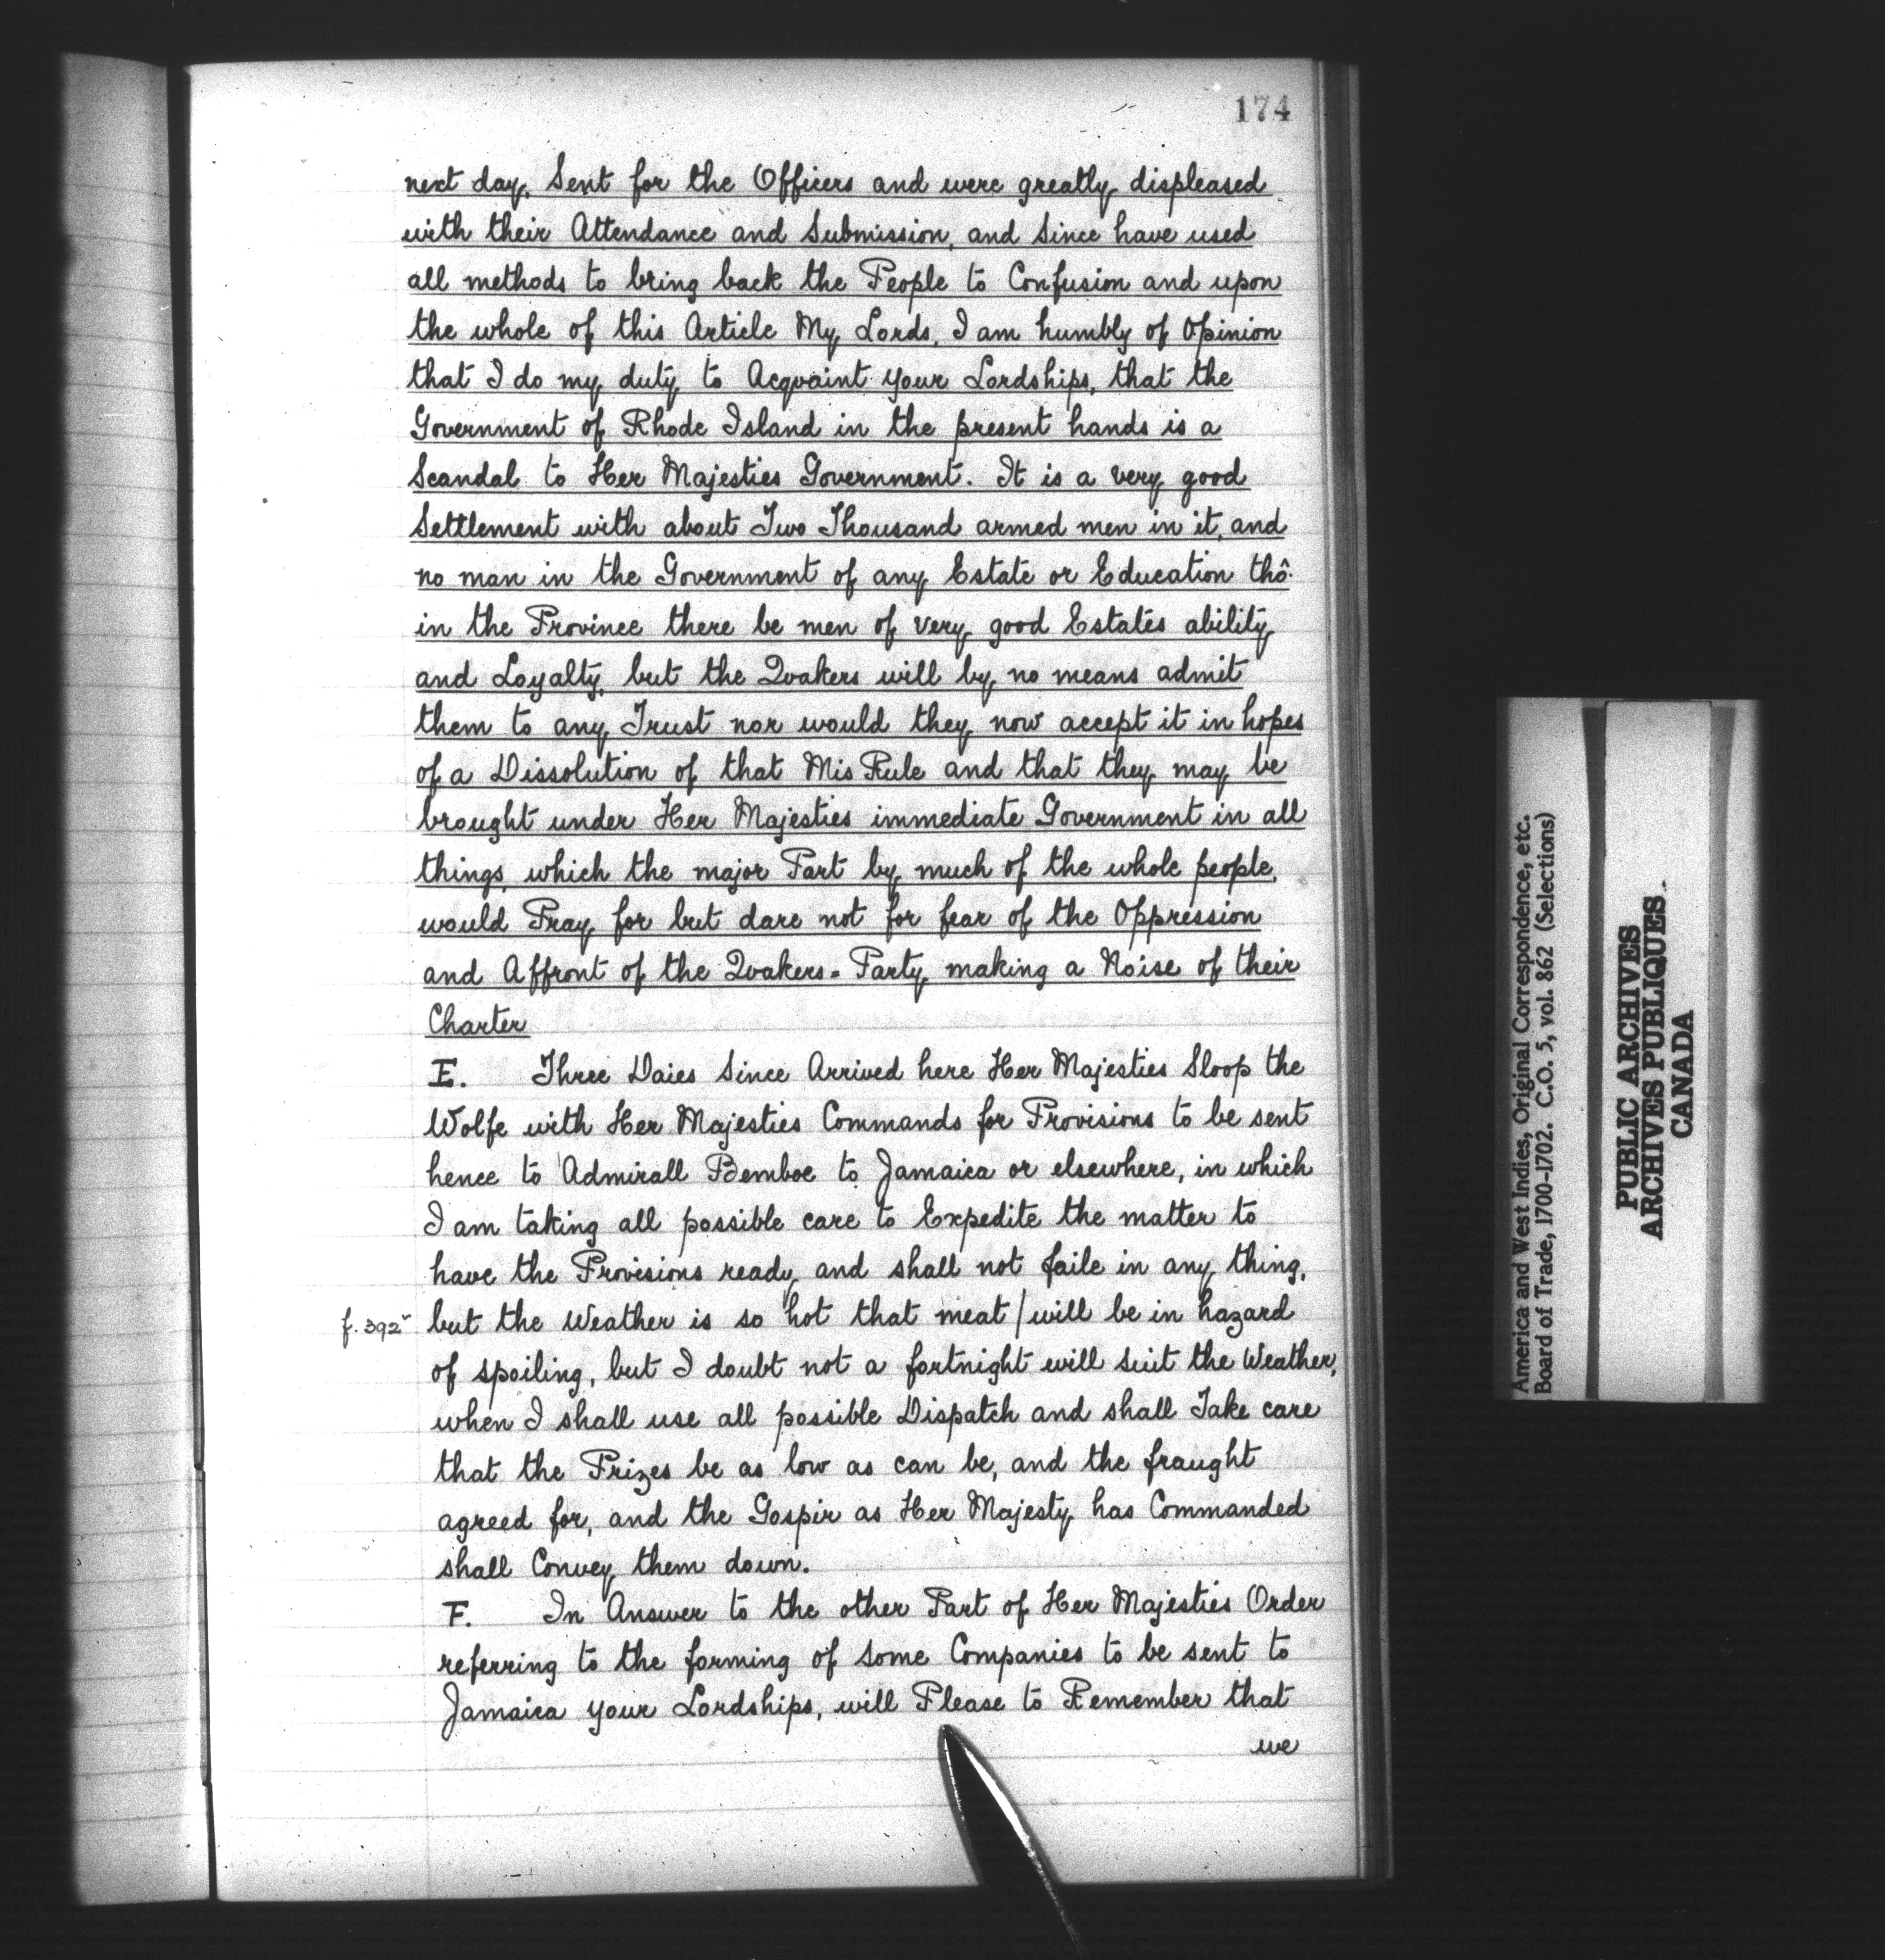 174
next day, Sent for the Officers and were greatly displeased
with their Attendance and Submission, and Since have used
all methods to bring back the People to Confusion and upon
the whole of this Article My Lords, I am humbly of Opinion
that I do my duty to Acqvaint your Lordships, that the
Government of Rhode Island in the present hands is a
Scandal to Her Majesties Government. It is a very good
Settlement with about Two Thousand armed men in it, and
no man in the Government of any Estate or Education thô
in the Province there be men of very good Estates ability
and Loyalty, but the Qvakers will by no means admit
them to any Trust nor would they now accept it in hopes
of a Dissolution of that Mis Rule and that they may be
brought under Her Majesties immediate Government in all
things, which the major Part by much of the whole people,
would Pray for but dare not for fear of the Oppression
and Affront of the Qvakers = Party making a Noise of their
Charter
E. Three Daies Since Arrived here Her Majesties Sloop the
Wolfe with Her Majesties Commands for Provisions to be sent
hence to Admirall Bemboe to Jamaica or elsewhere, in which
I am taking all possible care to Expedite the matter to
have the Provisions ready and shall not faile in any thing,
f. 392v but the Weather is so hot that meat / will be in hazard
of spoiling, but I doubt not a fortnight will suit the Weather,
when I shall use all possible Dispatch and shall Take care
that the Prizes be as low as can be, and the fraught
agreed for, and the Gospir as Her Majesty has Commanded
shall Convey them down.
F. In Answer to the other Part of Her Majesties Order
referring to the forming of some Companies to be sent to
Jamaica your Lordships, will Please to Remember that
we
America and West Indies, Original Correspondence, etc.
Board of Trade, 1700-1702. C.O. 5, vol. 862 (Selections)
PUBLIC ARCHIVES
ARCHIVES PUBLIQUES
CANADA